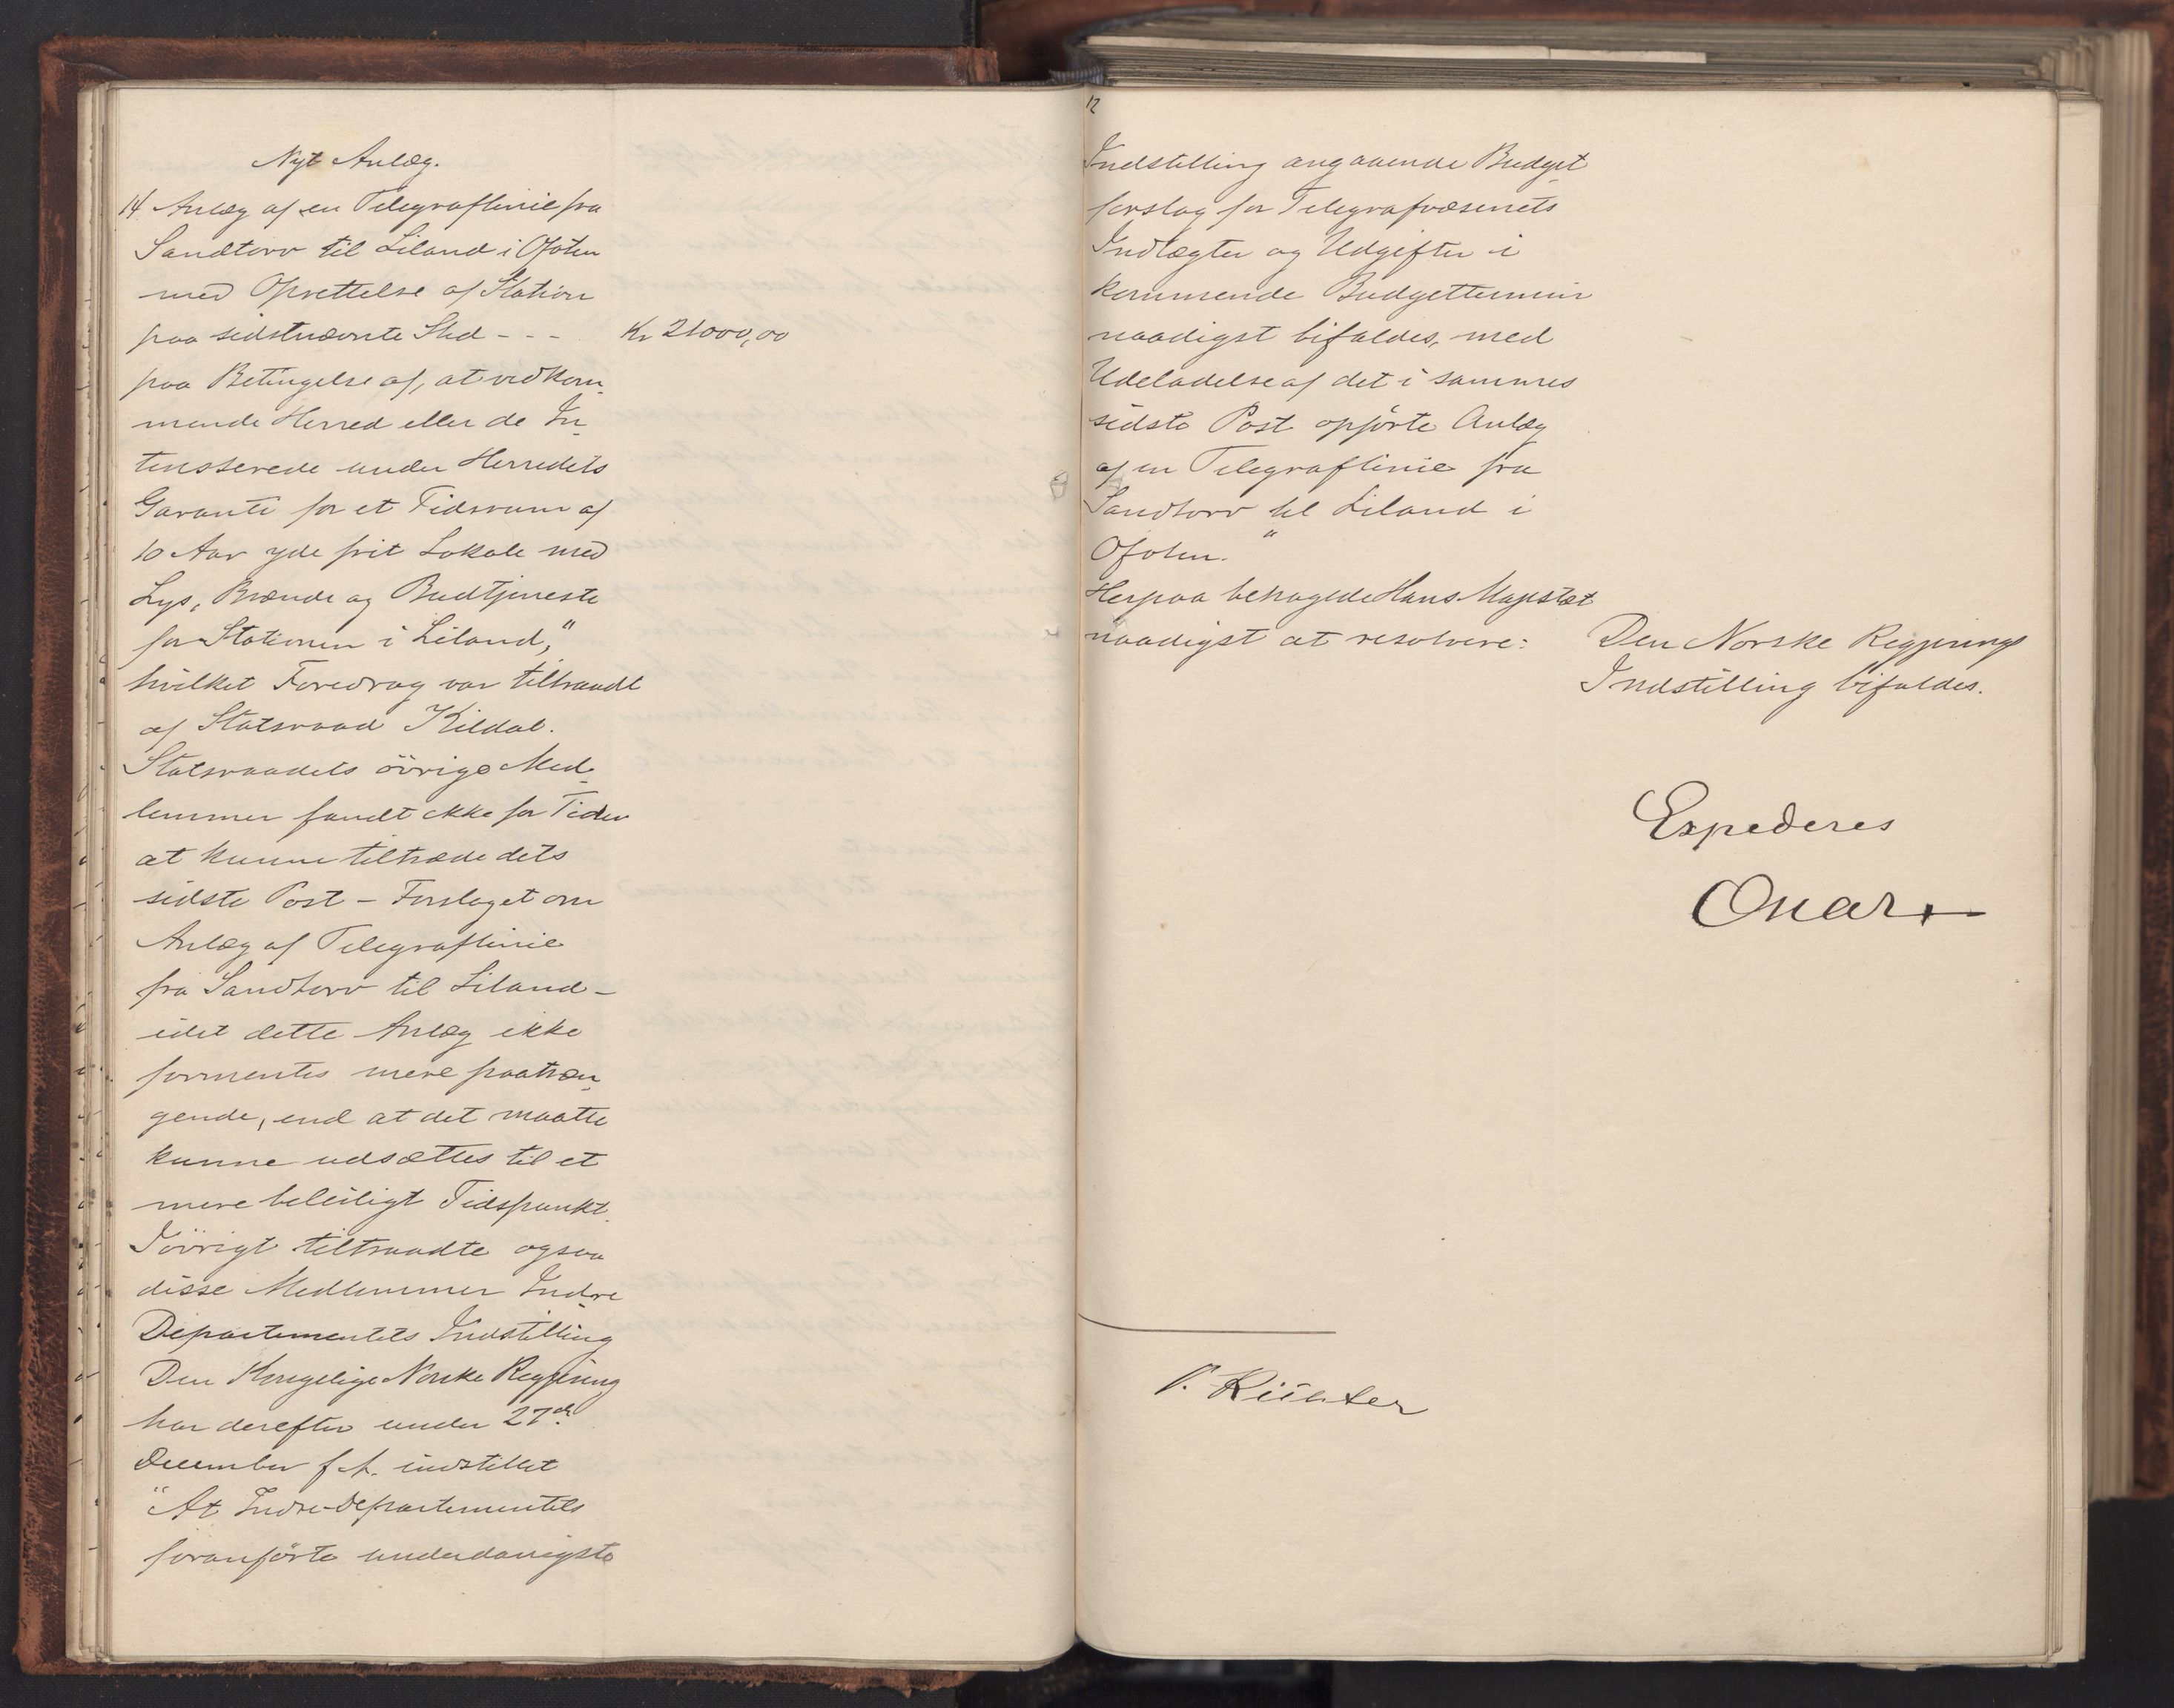 Nyt Anlæg.
14. Anlæg af en Telegraflinie fra
Sandtorv til Liland i Ofoten
med Oprettelse af Station
paa sidstnævnte Sted - - - Kr 21000,00
paa Betingelse af, at vedkom-
mende Herred eller de In-
teresserede under Herredets
Garanti for et Tidsrum af
10 Aar yde frit Lokale med
Lys, Brænde og Budtjeneste
for Stationen i Liland,"
hvilket Foredrag var tiltraadt
af Statsraad Kildal.
Statsraadets övrige Med-
lemmer fandt ikke for Tiden
at kunne tiltræde dets
sidste Post - Forslaget om
Anlæg af Telegraflinie
fra Sandtorv til Liland -
idet dette Anlæg ikke
formentes mere paatræn-
gende, end at det maatte
kunne udsættes til et
mere beleiligt Tidspunkt.
Iövrigt tiltraadte ogsaa
disse Medlemmer Indre
Departementets Indstilling
Den Kongelige Norske Regjering
har derefter under 27de
December f. A. indstillet
"At Indre-Departementets
foranförte underdanigste
12
Indstilling angaaende Budget-
forslag for Telegrafvæsenets
Indtægter og Udgifter i
kommende Budgettermin
naadigst bifaldes, med
Udeladelse af det i sammes
sidste Post opförte Anlæg
af en Telegraflinie fra
Sandtorv til Liland i
Ofoten."
Herpaa behagede Hans Majestæt
naadigst at resolvere: Den Norske Regjerings
Indstilling bifaldes.
Expederes
Oscar